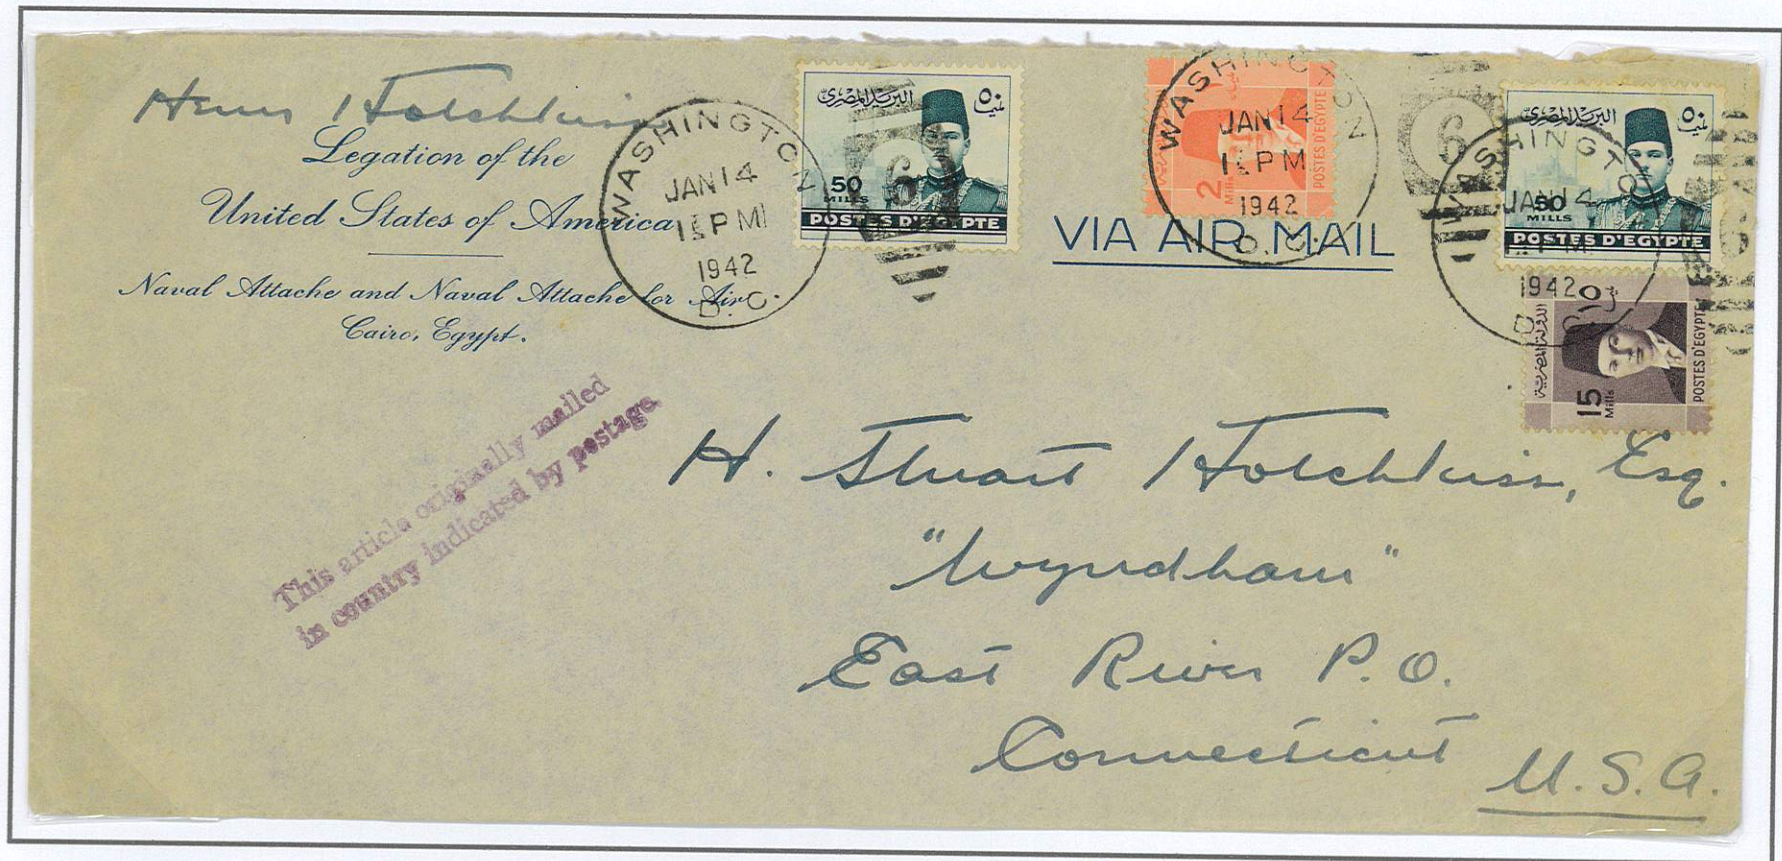 Henry Hotchkiss
Legation of the
United States of America
Naval Attache and Naval Attache for Air.
Cairo, Egypt.
WASHINGTON
JAN 14
PM
1942
D.C.
البريد المصرى
٥٠
50
MILLS
POSTES D'EGYPTE
6
WASHINGTON
JAN 14
PM
1942
D.C.
2
Mills
POSTES D'EGYPTE
6
VIA AIR MAIL
WASHINGTON
JAN 14
PM
1942
D
البريد المصرى
٥٠
50
MILLS
POSTES D'EGYPTE
الدولة المصرية
15
Mills
POSTES D'EGYPTE
This article originally mailed
in country indicated by postage
H. Stuart Hotchkiss, Esq.
"Wyndham"
East River P.O.
Connecticut
U.S.A.